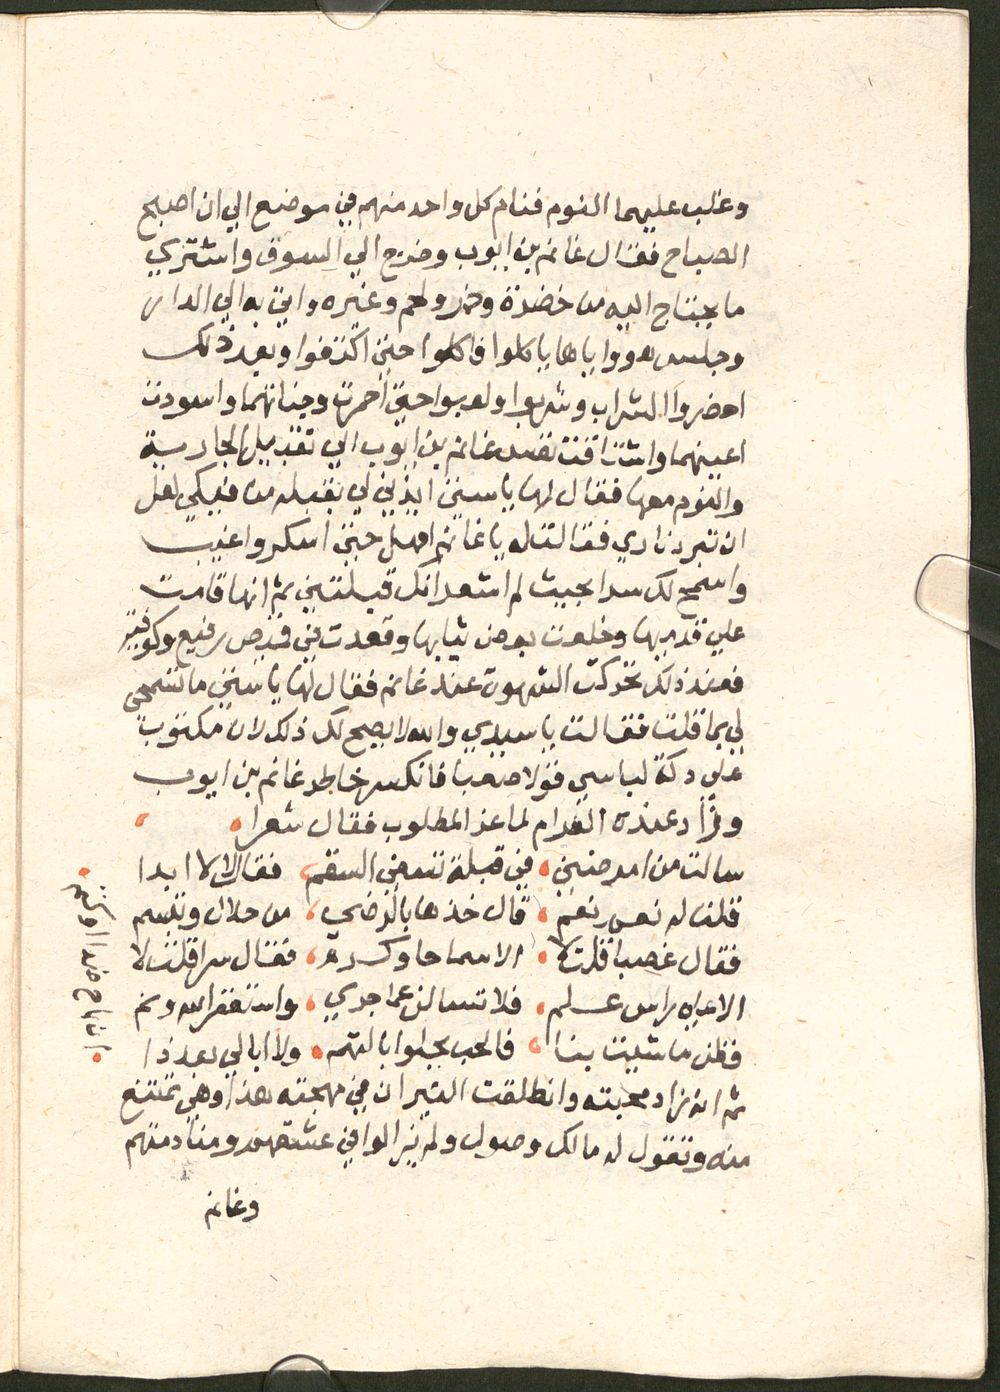 وغلب عليهما النوم فنام كل واحد منهم في موضع الي ان اصبح
الصباح فقال غانم بن ايوب وخرج الي السوق واشتري
ما يحتاج اليه من خضرة وخمر ولحم وغيره واتي به الي الدار
وجلس هو واياها ياكلوا فاكلوا حتي اكتفوا وبعد ذلك
احضروا الشراب وشربوا ولعبوا حتي احمرت وجناتهما واسودت
اعينهما واشتاقت نفس غانم بن ايوب الي تقبيل الجارية
والنوم معها فقال لها ياستي ايذني لي بقبله من فيكي لعل
ان تبرد ناري فقالت له يا غانم اصبر حتي اسكر واغيب
واسمح لك سرا بحيث لم اشعر انك قبلتني ثم انها قامت
علي قدميها وخلعت بعض ثيابها وقعدت في قميص رفيع وكوفية
فعند ذلك تحركت الشهوة عند غانم فقال لها ياستي ما تسمحي
لي بما قلت فقالت يا سيدي والله لا يصح لك ذلك لان مكتوب
علي دكة لباسي قولا صعبا فانكسر خاطر غانم بن ايوب
وزاد عنده الغرام لما عز المطلوب فقال شعرا
سالت من امرضني في قبلة تشفي السقم فقال لا لا ابدا
قلت له نعم نعم قال خذها بالرضي من حلال وتبسم
فقال غصبا قلت لا الا سماحا وكرم فقال سرا قلت لا
الا علي راس علم فلا تسالن عما جري واستغفر الله ونم
فظن ما شيت بنا فالحب يحلوا بالتهم ولا ابالي بعد ذا
ان باح ضدا او كتم
ثم انه زاد محبته وانطلقت النيران في مهجته هذا وهي تمتنع
منه وتقول له مالك وصول ولم يزالوا في عشقهم ومنادمتهم
وغانم